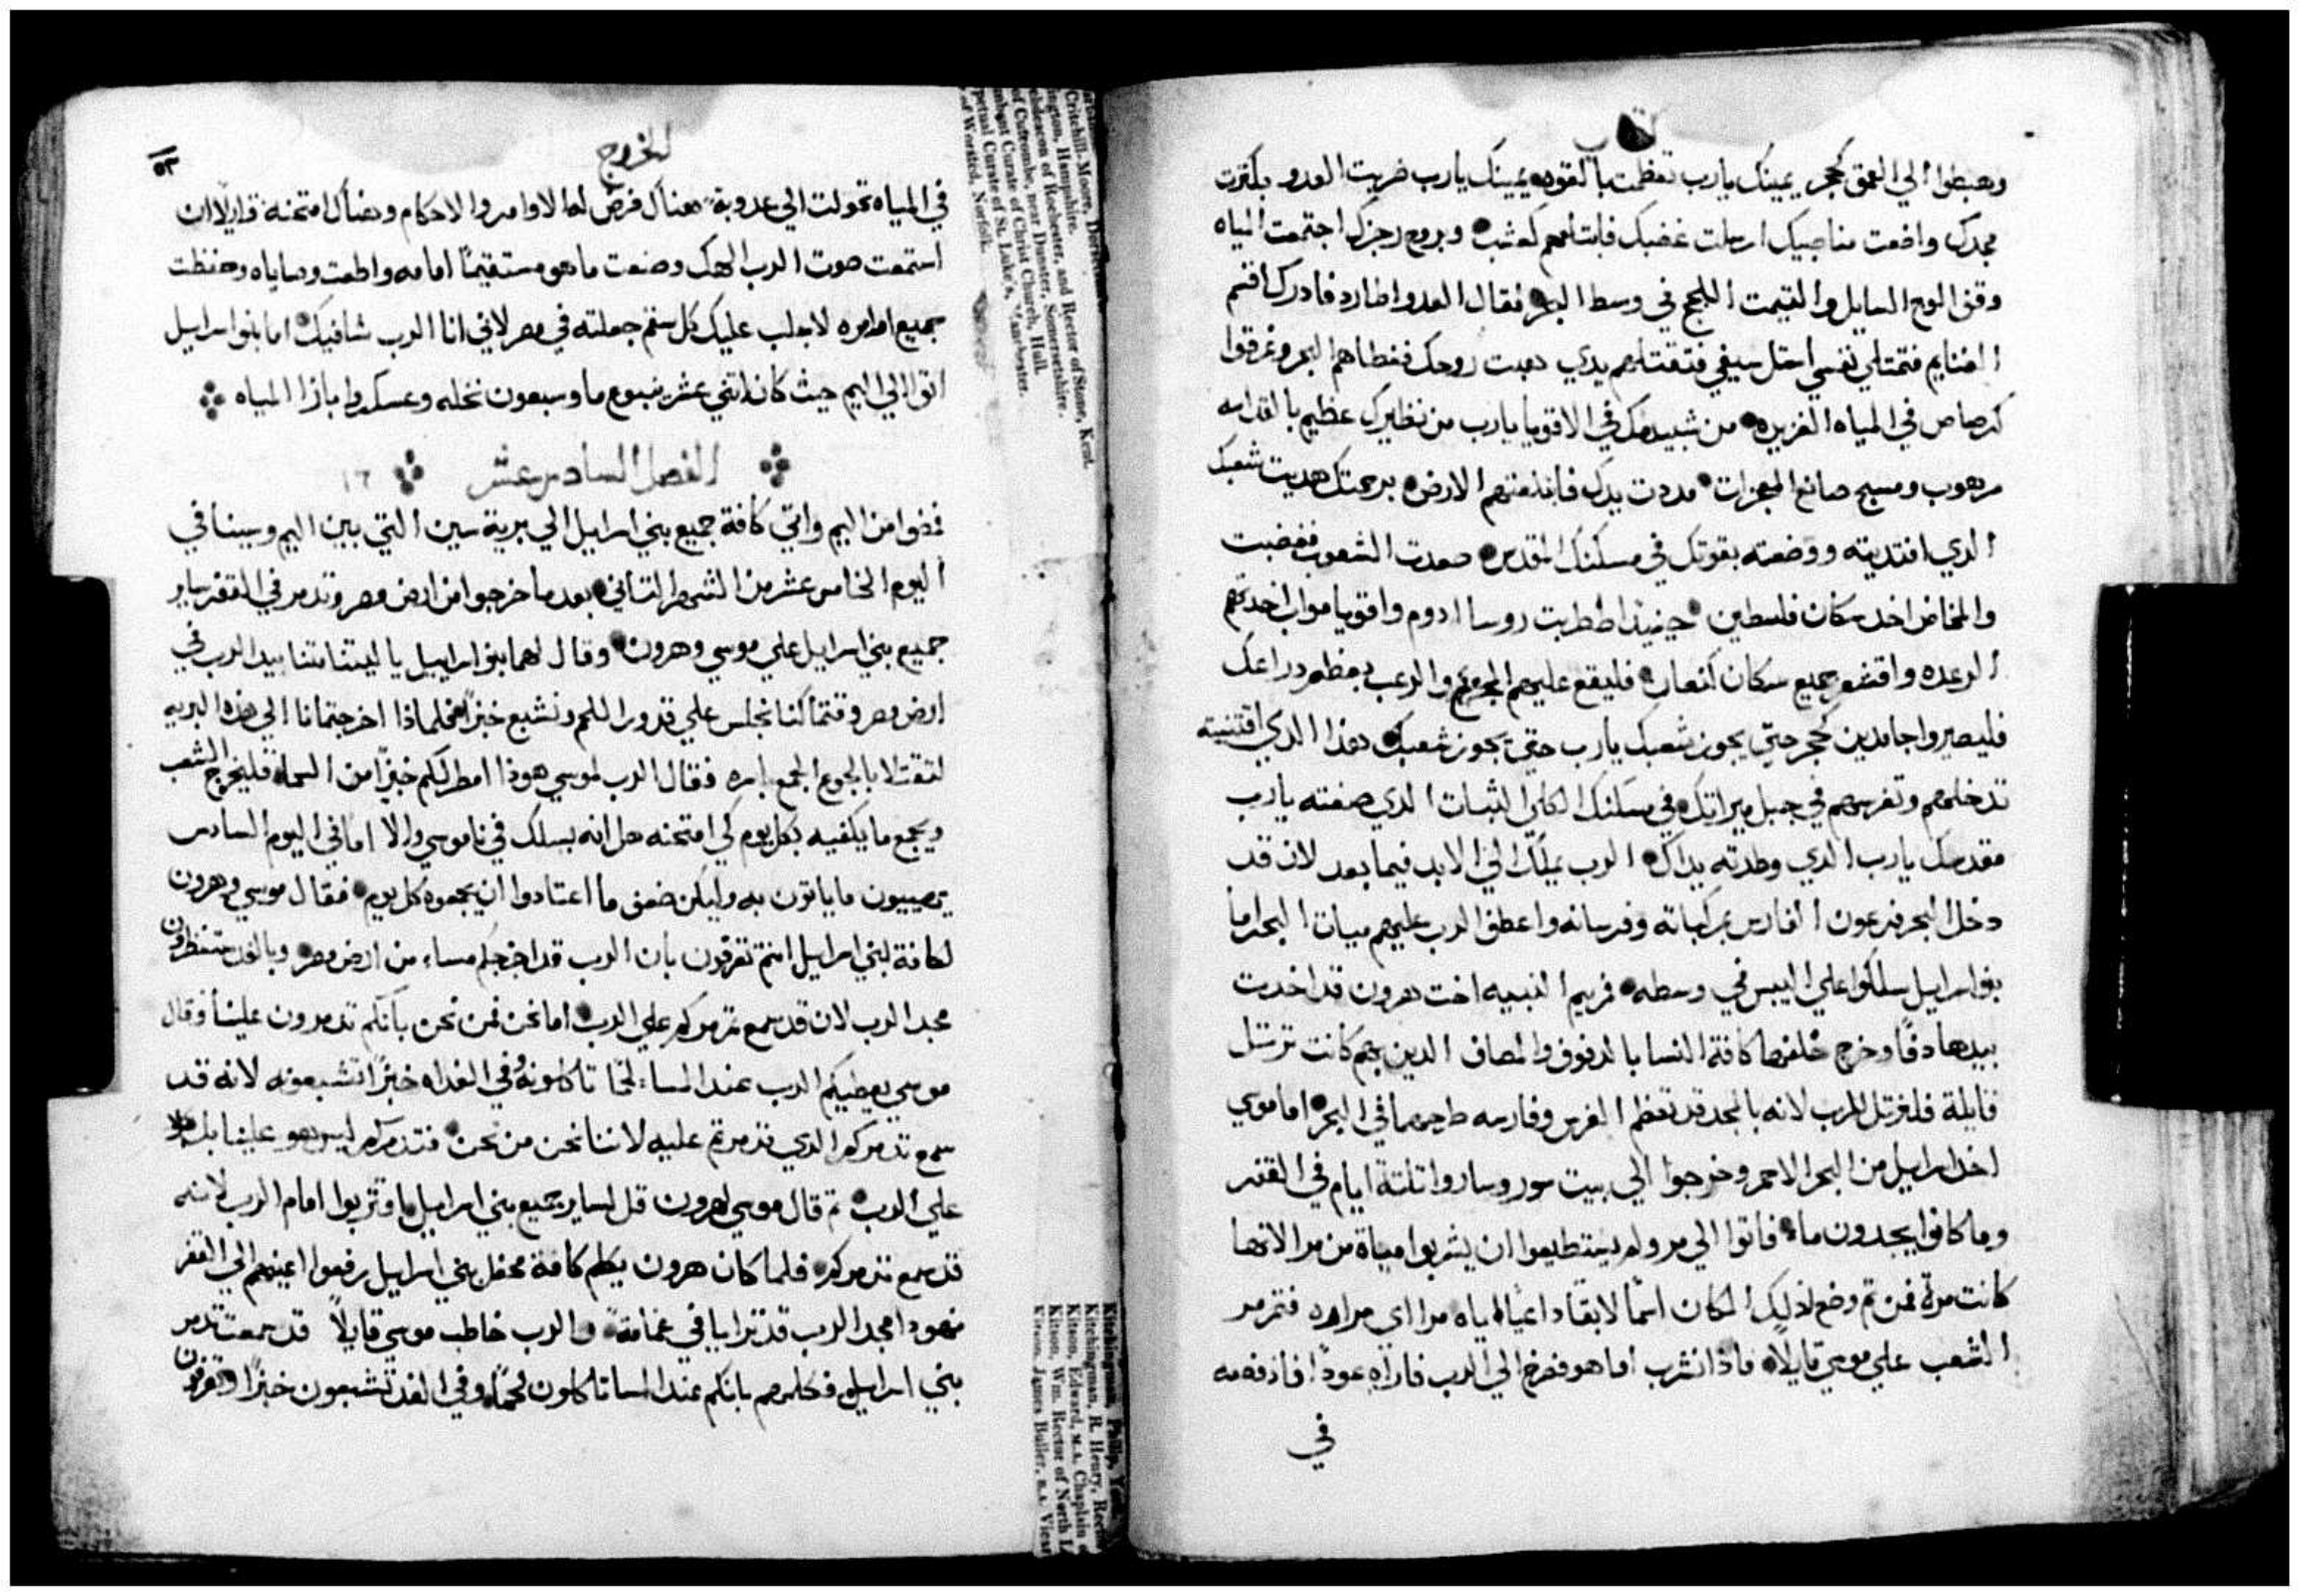 كتاب
وهبطوا الي العمق كحجر يمينك يارب تعظمت بالقوه يمينك يارب ضربت العدو بكثرت
مجدك واضعت مناصبيك ارسلت غضبك فابتلعهم كعشب وبروح رجزك اجتمعت المياه
وقف الموج السايل والتيمت اللجج في وسط البحر فقال العدو اطارد فادرك اقسم
الغنايم فتمتلي نفسي استل سيفي فتقتلهم يدي هبت روحك فغطاهم البحر وغرقوا
كرصاص في المياه الغزيره من شبيهك في الاقويا يارب من نظيرك عظيم بالقداسه
مرهوب ومسبح صانع المعجزات مددت يدك فابتلعتهم الارض برحمتك هديت شعبك
الدي افتديته ووضعته بقوتك في مسكنك المقدس صعدت الشعوب فغضبت
والمخاض اخد سكان فلسطين حينيد اضطربت روسا ادوم واقويا مواب اخدتهم
الرعده واقشعر جميع سكان كنعان فليقع عليهم الجزع والرعب بعظم دراعك
فليصيروا جامدين كحجر حتي يجوز شعبك يارب حتي يجوز شعبك هدا الدي اقتنيته
تدخلهم وتغرسهم في جبل ميراثك في مسكنك الكلي الثبات الدي صنعته يارب
مقدسك يارب الدي وطدته يداك الرب يملك الي الابد فيما بعد لان قد
دخل البحر فرعون الفارس بمركباته وفرسانه واعطف الرب عليهم مياه البحر اما
بنو اسراييل سلكوا علي اليبس في وسطه فمريم النبيه اخت هرون قد اخدت
بيدها دفا وخرج خلفها كافة النسا بالدفوف والمصاف الدين بهم كانت ترتل
قايلة فلنرتل للرب لانه بالمجد قد تعظم الفرس وفارسه طرحهما في البحر اما موسي
اخد اسراييل من البحر الاحمر وخرجوا الي بيت سور وساروا تلتة ايام في القفر
وما كانوا يجدون ما فاتوا الي مر ولم يستطيعوا ان يشربوا مياه من مرا لانها
كانت مرة فمن تم وضع لذلك المكان اسما لايقا داعيا اياه مرا اي مراره فتمرمر
الشعب علي موسي قايلا ماذا نشرب اما هو فصرخ الي الرب فاراه عودا فاذ دفعه
في
الخروج
٥٣
في المياه تحولت الي عدوبة هناك فرض له الاوامر والاحكام وهناك امتحنه قايلا ان
استمعت صوت الرب الهك وصنعت ما هو مستقيما امامه واطعت وصاياه وحفظت
جميع اوامره لا جلب عليك كل سقم جعلته في مصر لاني انا الرب شافيك اما بنو اسراييل
اتوا الي اليم حيث كان اتني عشر ينبوع ما وسبعون نخله وعسكروا بازا المياه
الفصل السادس عشر ١٦
فمضوا من اليم واتي كافة جميع بني اسراييل الي برية سين التي بين اليم وسينا في
اليوم الخامس عشر من الشهر التاني بعد ما خرجوا من ارض مصر وتدمر في القفر ساير
جميع بني اسراييل علي موسي وهرون وقال لهما بنو اسراييل يا ليتنا متنا بيد الرب في
ارض مصر وقتما كنا نجلس علي قدور اللحم ونشبع خبزا فلماذا اخرجتمانا الي هذه البريه
لتقتلا بالجوع الجمع باسره فقال الرب لموسي هوذا امطر لكم خبزا من السما فليخرج الشعب
ويجمع ما يكفيه بكل يوم كي امتحنه هل انه يسلك في ناموسي والا اما في اليوم السادس
يهييون ما ياتون به وليكن ضعف ما اعتادوا ان يجمعوه كل يوم فقال موسي وهرون
لكافة بني اسراييل انتم تعرفون بان الرب قد اخرجكم مساء من ارض مصر وبالغد ستنظرون
مجد الرب لان قد سمع تدمركم علي الرب اما نحن فمن نحن بانكم تدمرون علينا وقال
موسي يعطيكم الرب عند المساء لحما تاكلونه وفي الغداه خبزا تشبعونه لانه قد
سمع تدمركم الدي تدمرتم عليه لاننا نحن من نحن فتدمركم ليس هو علينا بل هو
علي الرب تم قال موسي لهرون قل لساير جميع بني اسراييل اقتربوا امام الرب لانه
قد سمع تدمركم فلما كان هرون يكلم كافة محفل بني اسراييل رفعوا اعينهم الي القفر
فهودا مجد الرب قد ترايا في غمامة والرب خاطب موسي قايلا قد سمعت تدمر
بني اسراييل فكلمهم بانكم عند المسا تاكلون لحما وفي الغد تشبعون خبزا وتعرفون
Critchill-Moore, Dorset
ington, Hampshire.
hdeacon of Rochester, and Rector of Stone, Kent.
of Cutcombe, near Dunster, Somersetshire.
mbent Curate of Christ Church, Hull.
petual Curate of St. Luke's, Manchester.
of Worsted, Norfolk.
Kitchingman, Philip,
Kitchingman, R. Henry,
Kitson, Edward, M.A. Chaplain
Kitson, Wm. Rector of North
Kitson, James Buller, B.A.